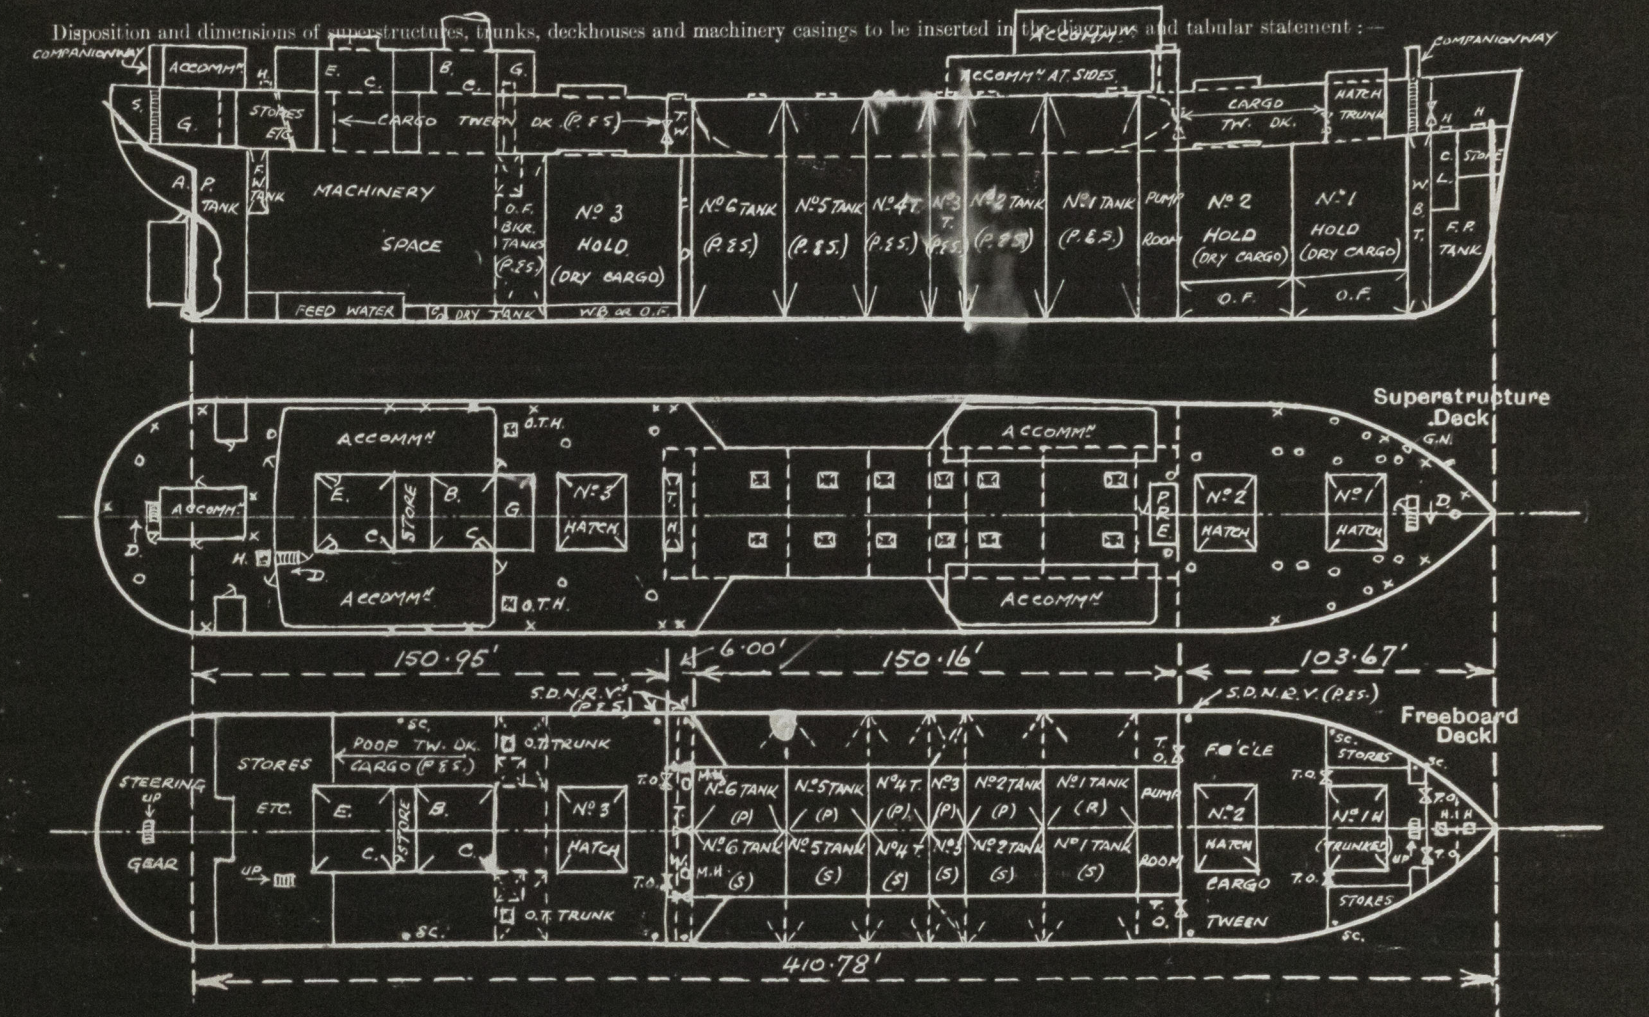 Disposition and dimensions of superstructures, trunks, deckhouses and machinery casings to be inserted in the diagrams and tabular statement :—
COMPANIONWAY
ACCOMMN
H.
E.
C.
B.
C.
G.
ACCOMMN
ACCOMMN AT SIDES
COMPANIONWAY
S.
G.
STORES
ETC
CARGO TWEEN DK. (P.&S)
T.
W.
CARGO
TW. DK.
HATCH
TRUNK
H
H
A. P.
TANK
F.
W.
TANK
MACHINERY
SPACE
O.F.
BKR.
TANKS
(P.&S.)
No 3
HOLD
(DRY CARGO)
No 6 TANK
(P.&S.)
No 5 TANK
(P.&S.)
No 4 T.
(P.&S.)
No 3
T.
(P.&S.)
No 2 TANK
(P.&S)
No 1 TANK
(P.&S.)
PUMP
ROOM
No 2
HOLD
(DRY CARGO)
No 1
HOLD
(DRY CARGO)
W.
B.
T.
C.
L.
STORE
F.P.
TANK
FEED WATER
DRY TANK
W.B OR O.F.
O.F.
O.F.
Superstructure
Deck
ACCOMMN
O.T.H.
ACCOMMN
G.N.
ACCOMMN
D.
E.
C.
STORE
B.
C.
G.
No 3
HATCH
T.
H
P
R
E.
No 2
HATCH
No 1
HATCH
D.
H.
D.
ACCOMMN
O.T.H.
ACCOMMN
150.95'
6.00'
150.16'
103.67'
S.D.N.R.V.S
(P&S)
S.D.N.R.V. (P.&S.)
Freeboard
Deck
SC.
POOP TW. DK.
CARGO (P&S.)
O.T. TRUNK
STORES
ETC.
STEERING
UP
GEAR
UP
E.
C.
STORE
B.
C.
No 3
HATCH
T.O.
T.
W.
T.O.
M.H.
M.H.
No 6 TANK
(P)
No 5 TANK
(P)
No 4 T.
(P)
No 3
(P)
No 2 TANK
(P)
No 1 TANK
(P)
No 6 TANK
(S)
No 5 TANK
(S)
No 4 T.
(S)
No 3
(S)
No 2 TANK
(S)
No 1 TANK
(S)
T.
O.
PUMP
ROOM
T.
O.
FO'C'LE
No 2
HATCH
CARGO
TWEEN
SC.
STORES
SC.
T.O.
No 1 H
(TRUNKED)
UP
T.O.
H.
H
T.O.
T.O.
STORES
SC.
O.T. TRUNK
SC.
410.78'